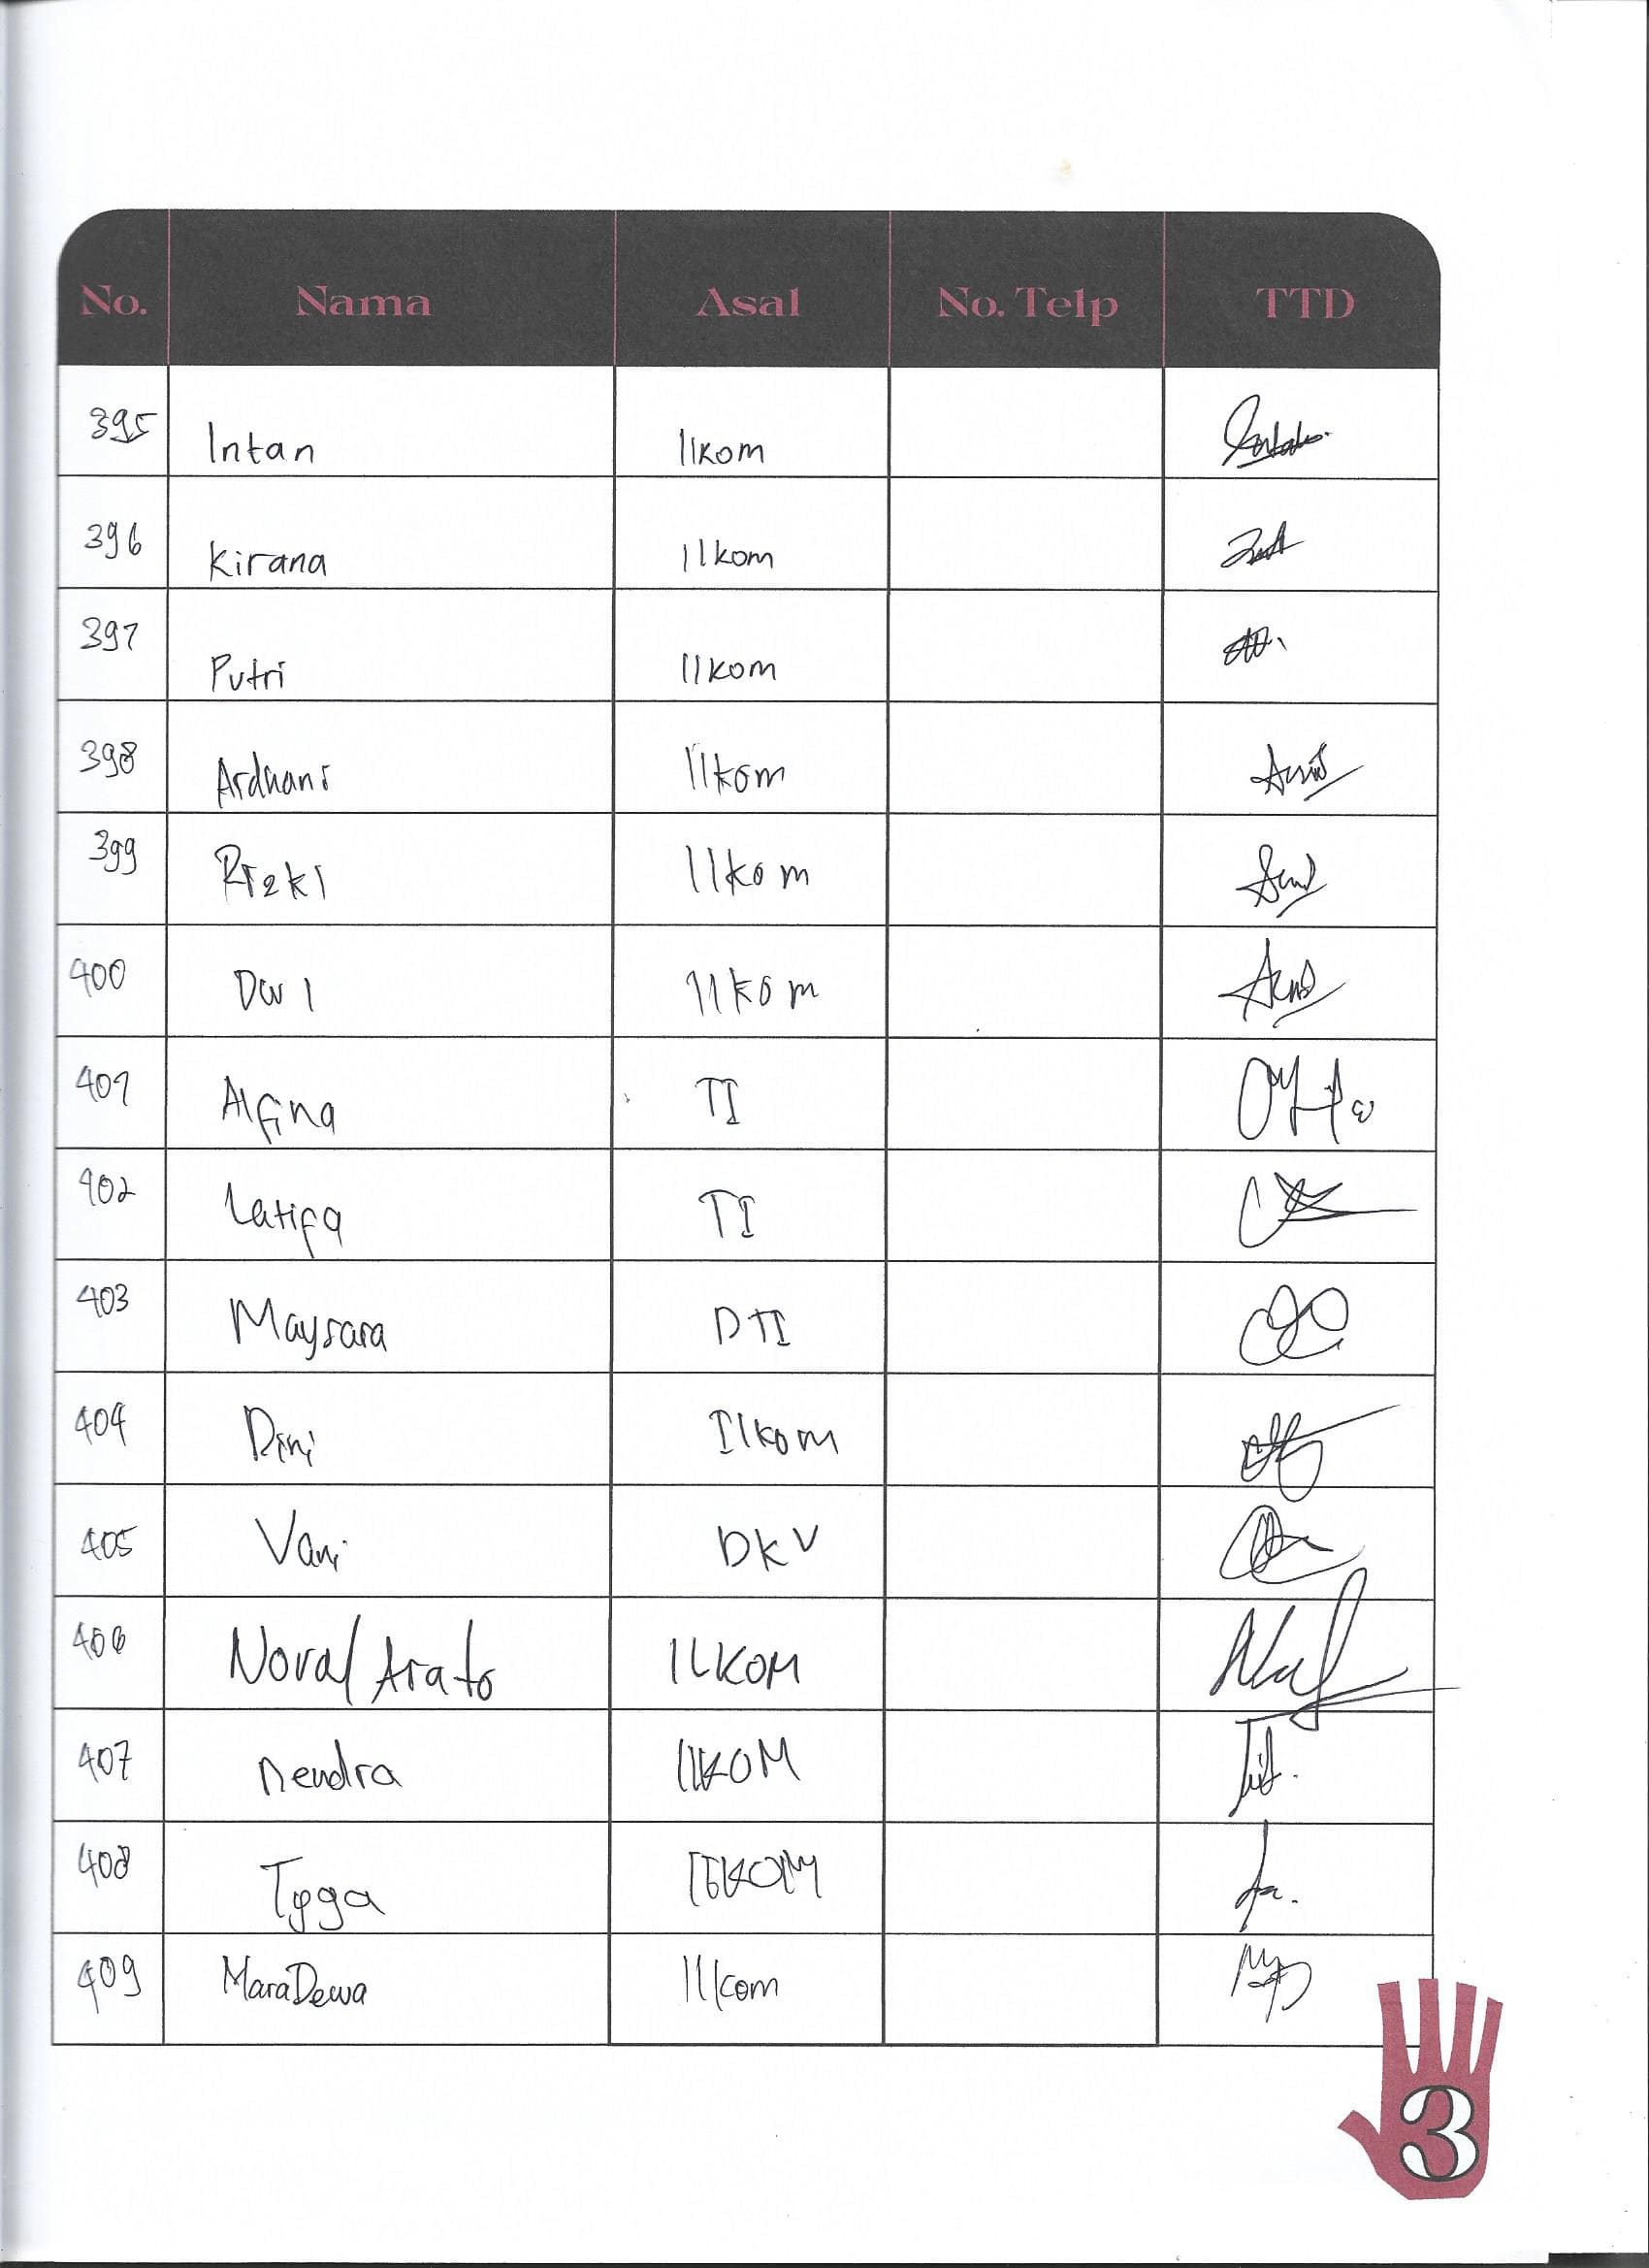 No. Nama Asal No. Telp TTD
395 Intan Ilkom
396 Kirana Ilkom
397 Putri Ilkom
398 Ardhani Ilkom
399 Rizki Ilkom
400 Ilkom
401 Alfina TI
402 Latifa TI
403 Maysara DTI
404 Dini Ilkom
405 Vani DKV
406 Noval Arato ILKOM
407 nendra IlKOM
408 Tyga
409 MaraDewa Ilkom
3